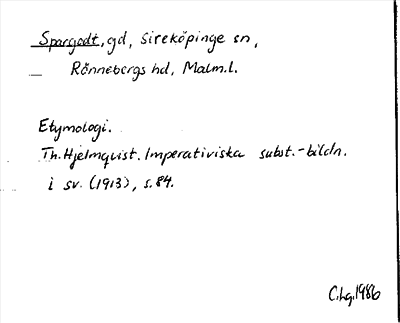 Spargodt, gd, Sireköpinge sn,
Rönnebergs hd, Malm.l.
Etymologi.
Th. Hjelmqvist. Imperativiska subst.-bildn.
i sv. (1913), s. 84.
C.Lg. 1986